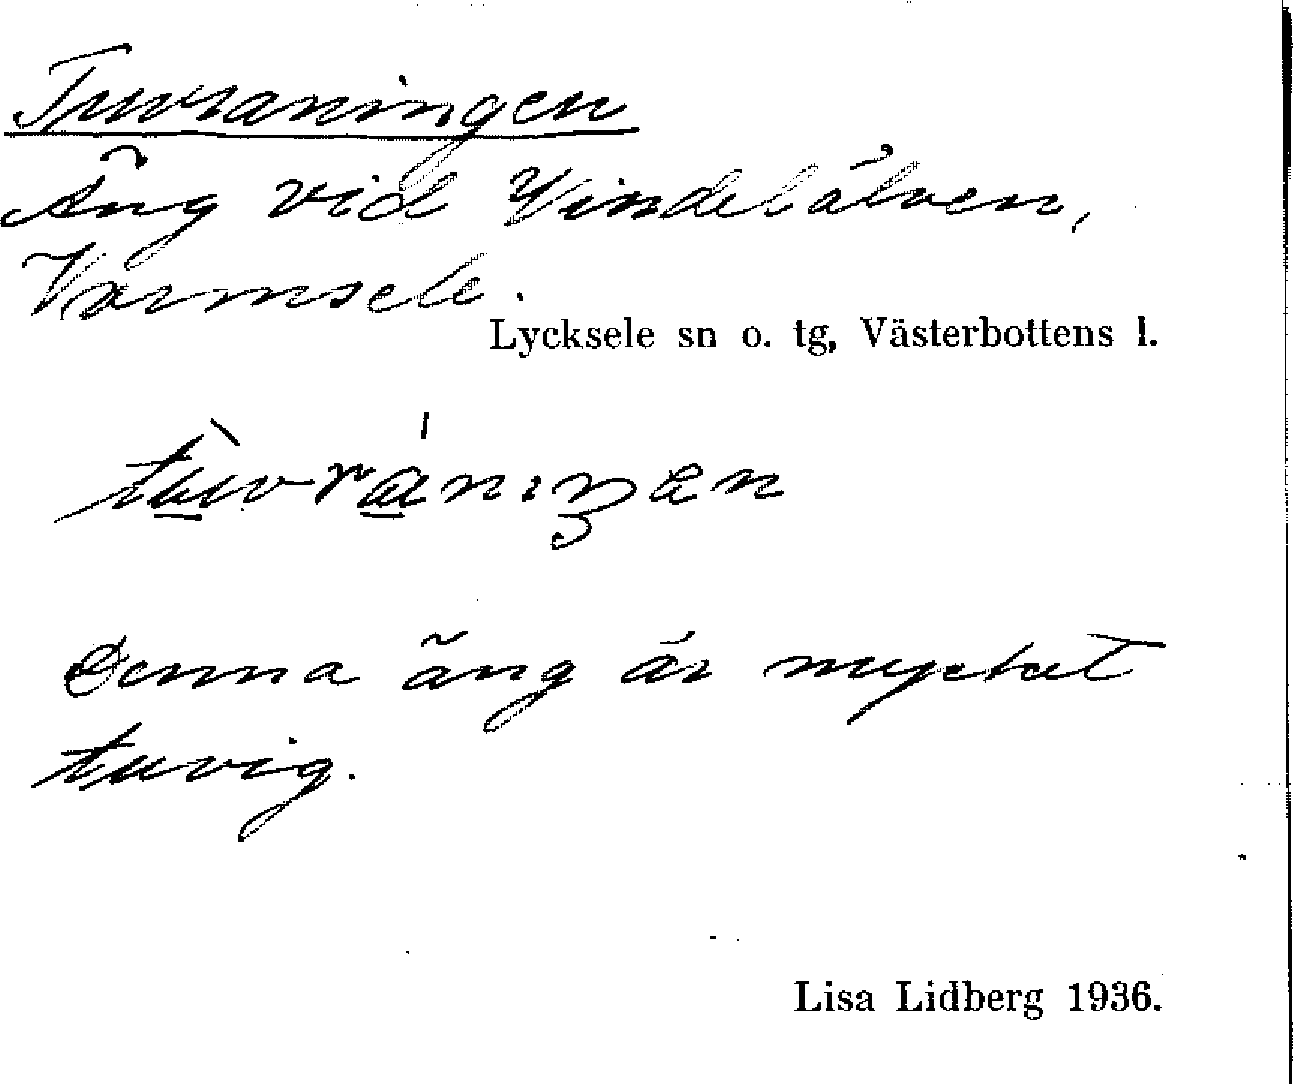 Tuvraningen
Äng vid Vindelälven,
Varmsele.
Lycksele sn o. tg, Västerbottens l.
Denna äng är mycket
tuvig.
Lisa Lidberg 1936.